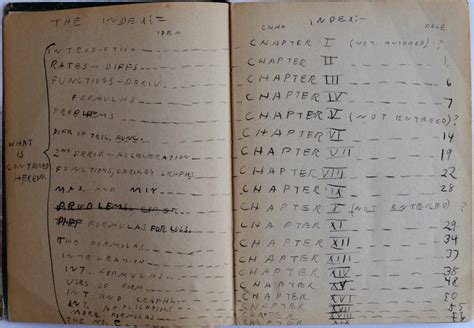 THE INDEX:=
IDEA
INTRODUCTION
RATES - DIFFS
FUNCTIONS - DERIV
FORMULAS
PROBLEMS
DIFF OF TRIG. FUNC.
2ND DERIV - ACCELERATION
FUNCTIONS, DERIV BY GRAPHS
MAX AND MIN
PROBLEMS,
DIFF FORMULAS FOR LOGS.
THE FORMULAS
INTEGRATION
INT. FORMULAS
USES OF FORM
INT AND GRAPHS
INT APPLICATIONS
MORE FORMULAS
WHAT
IS
CONTAINED
HEREIN:
CHAP INDEX:- PAGE
CHAPTER I (NOT ENTERED)?
CHAPTER II 1
CHAPTER III 6
CHAPTER IV 7
CHAPTER V (NOT ENTERED)?
CHAPTER VI 14
CHAPTER VII 19
CHAPTER VIII 22
CHAPTER IX 28
CHAPTER X (NOT ENTERED)?
CHAPTER XI 29
CHAPTER XII 34
CHAPTER XIII 37
CHAPTER XIV 38
CHAPTER XV 48
CHAPTER XVI 50
CHAPTER XVII
CHAPTER